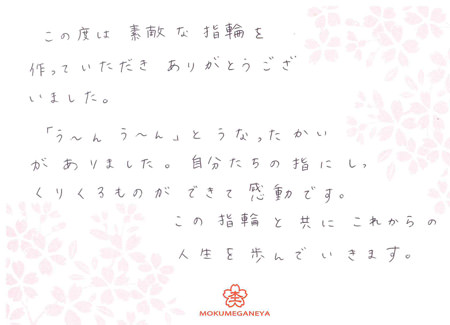 この度は 素敵な 指輪を
作っていただき ありがとうござ
いました。
「う〜ん う〜ん」と うなったかい
が ありました。自分たちの指にしっ
くりくるものが できて 感動です。
この 指輪と共に これからの
人生を 歩んでいきます。
MOKUMEGANEYA